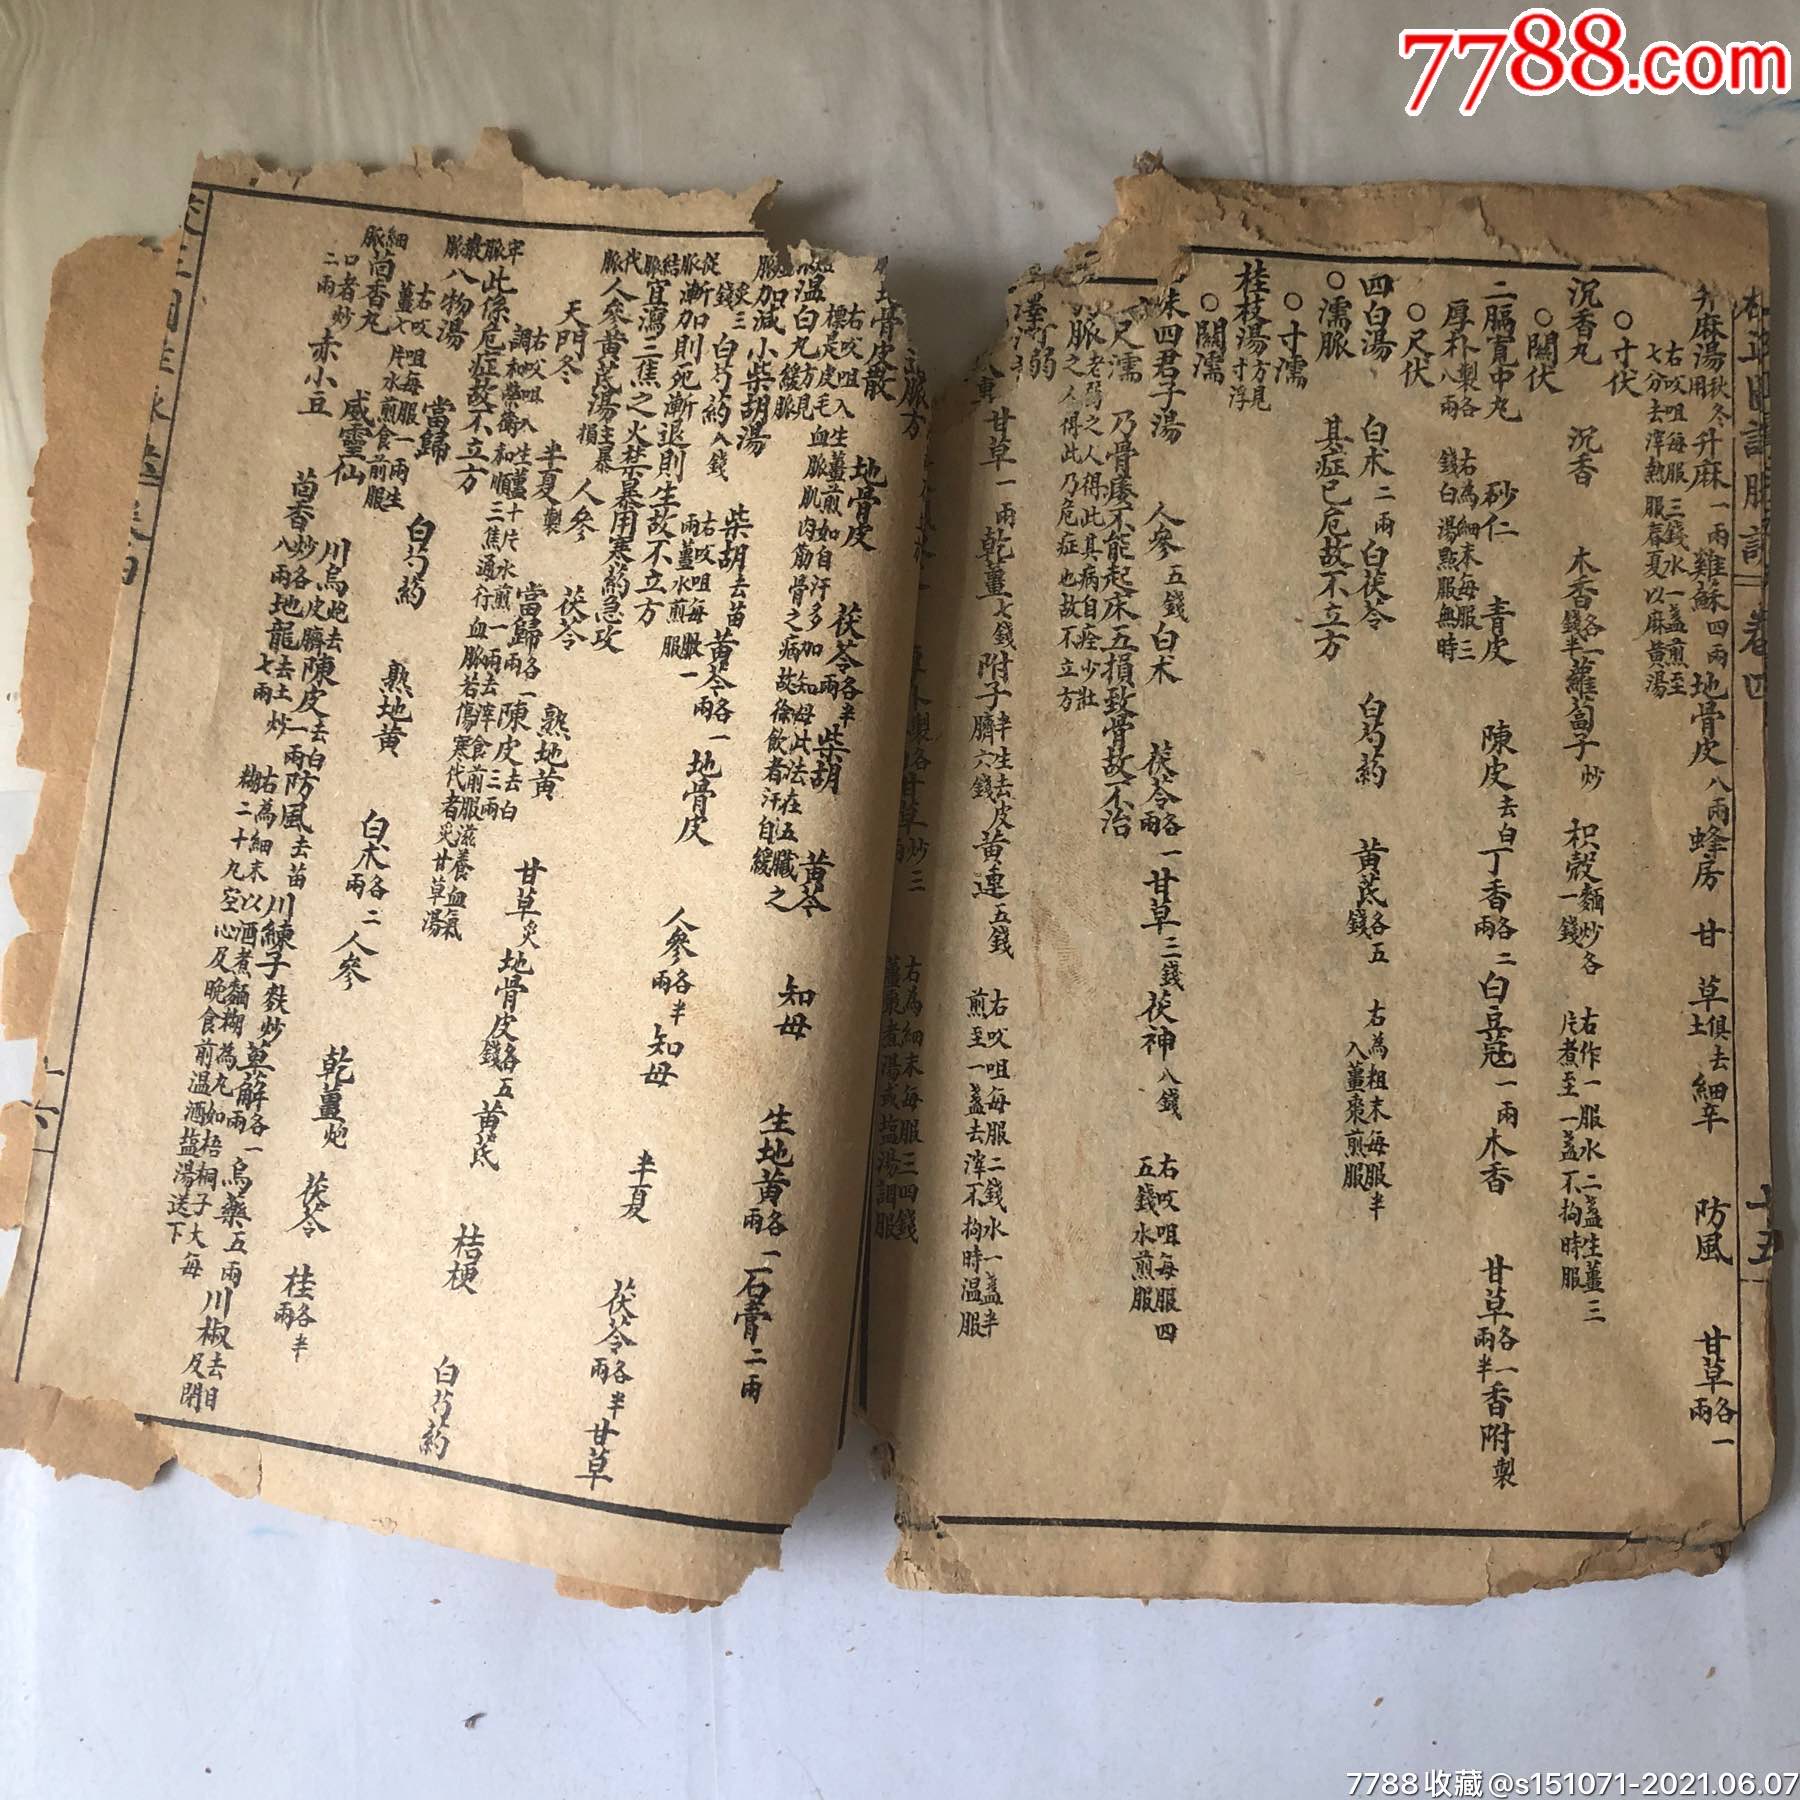 7788.com
卷四
十五
升麻湯秋冬用升麻一兩雞蘇四兩地骨皮八兩蜂房 甘草俱去土細辛 防風 甘草各一兩
右㕮咀每服三錢水一盞煎至七分去滓熱服春夏以麻黃湯
○寸伏
沉香丸 沉香 木香各一錢半蘿蔔子炒 枳殼麵炒各一錢 右作一服水二盞生薑三片煮至一盞不拘時服
○關伏
二膈寬中丸 砂仁 青皮 陳皮去白丁香各二兩白豆蔻一兩木香 甘草各一兩半香附製
厚朴製各八兩 右為細末每服三錢白湯點服無時
○尺伏
四白湯 白朮二兩白茯苓 白芍藥 黃芪各五錢 右為粗末每服半入薑棗煎服
○濡脈 其症已危故不立方
○寸濡
桂枝湯方見寸浮
○關濡
味四君子湯 人參五錢白朮 茯苓各一兩甘草三錢茯神八錢 右㕮咀每服四五錢水煎服
尺濡 乃骨痿不能起床五損致骨故不治
脈老弱之人得此其病自痊少壯之人得此乃危症也故不立方
弱
甘草一兩乾薑七錢附子半生去皮臍六錢黃連五錢 右㕮咀每服二錢水一盞半煎至一盞去滓不拘時溫服
右為細末每服三四錢薑棗煮湯或塩湯調服
脈方
地骨皮散 地骨皮 茯苓各半兩柴胡 黃芩 知母 生地黃各一兩石膏二兩
右㕮咀入生薑煎如自汗多加知母此法在五臟之標是皮毛血脈肌肉筋骨之病故徐飲者汗自緩
溫白丸方見緩脈
加減小柴胡湯 柴胡去苗黃芩各一兩 地骨皮 人參各半兩知母 半夏 茯苓各半兩甘草
炙三錢 白芍藥八錢 右㕮咀每服一兩薑水煎服
促脈漸加則死漸退則生故不立方
結脈宜瀉三焦之火禁暴用寒藥急攻
代脈人參黃芪湯主暴損 人參 茯苓 熟地黃 甘草炙地骨皮各五錢黃芪 桔梗 白芍藥
天門冬 半夏製 當歸各一兩陳皮去白三兩
右㕮咀入生薑十片水煎一兩去滓食前服滋養血氣調和榮衛和順三焦通行血脈若傷寒代者炙甘草湯
牢脈此係危症故不立方
散脈八物湯 當歸 白芍藥 熟地黃 白朮各二兩人參 乾薑炮 茯苓 桂各半兩
右㕮咀每服一兩生薑七片水煎食前服
細脈茴香丸 威靈仙 川烏炮去皮臍陳皮去白一兩防風去苗川練子麩炒萆薢各一兩烏藥五兩川椒去目及閉
口者炒二兩 赤小豆 茴香炒各八兩地龍去土炒七兩 右為細末以酒煮麵糊為丸如梧桐子大每糊二十丸空心及晚食前溫酒塩湯送下
7788收藏@s151071-2021.06.07